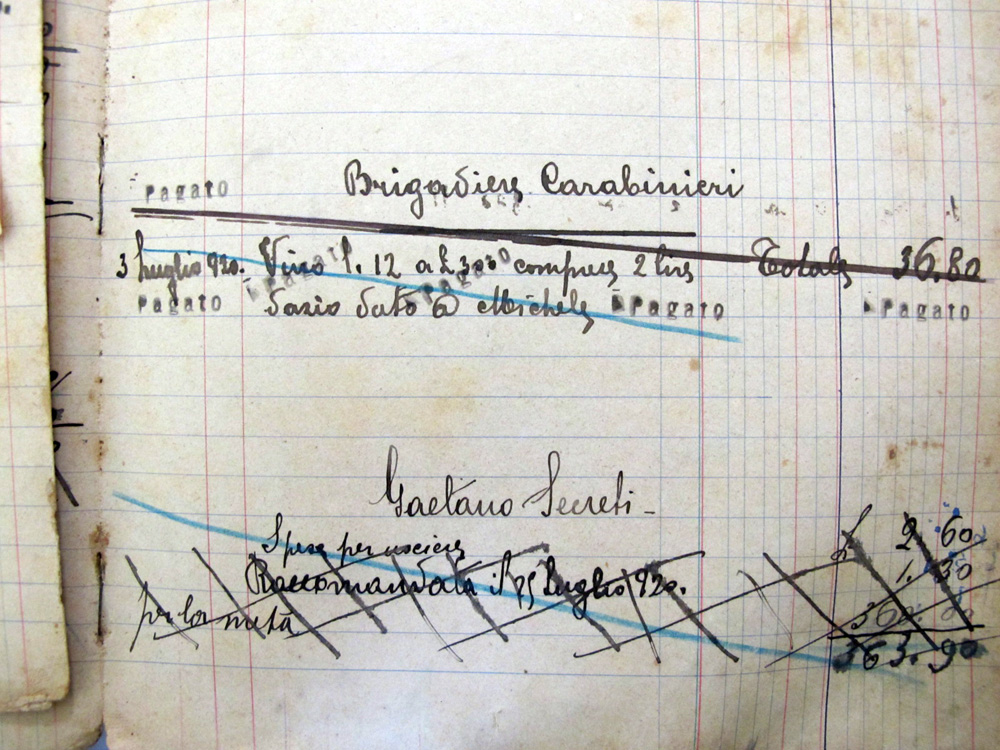 Pagato
Brigadiere Carabinieri
3 Luglio 920. Vino l. 12 a £ 3 comprese 2 lire Totale 36.80
Pagato Pagato
Pagato dazio dato a Michele Pagato Pagato
Gaetano Secreti -
Spese per usciere £ 2 60
Raccomandata il Luglio 920. 1. 30
per la metà 360
363. 90